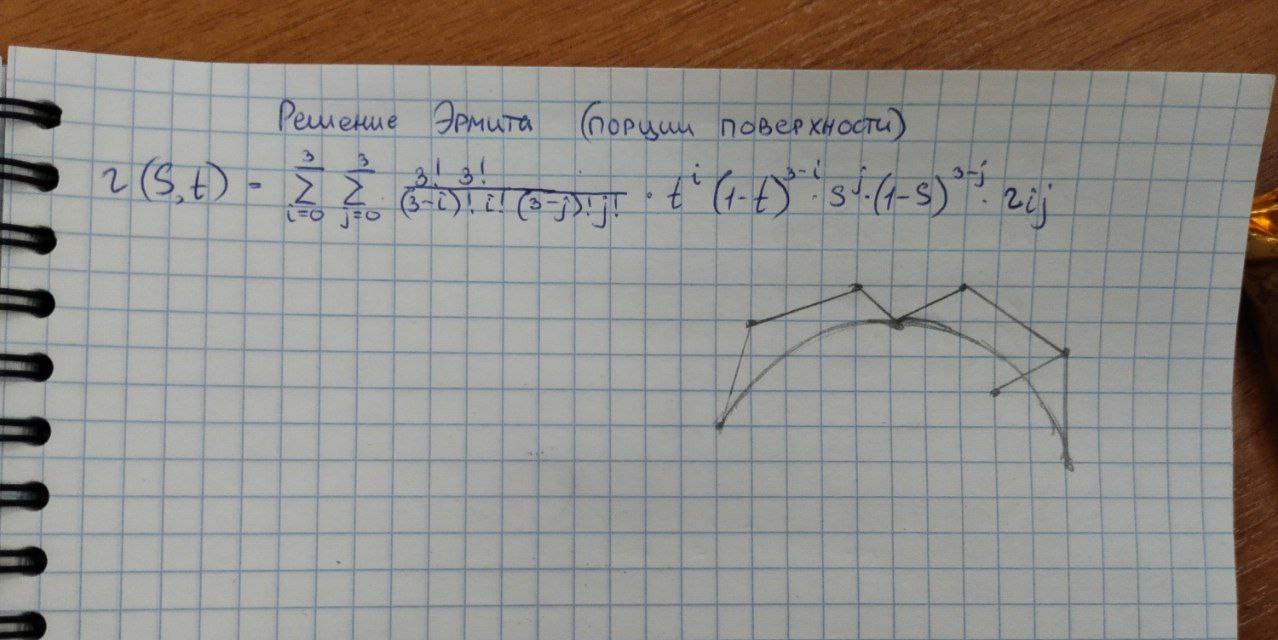 Решение Эрмита (порции поверхности)
r(S,t) = \sum_{i=0}^{3} \sum_{j=0}^{3} \frac{3! 3!}{(3-i)! i! (3-j)! j!} · t^i (1-t)^{3-i} · S^j · (1-S)^{3-j} · r_{ij}